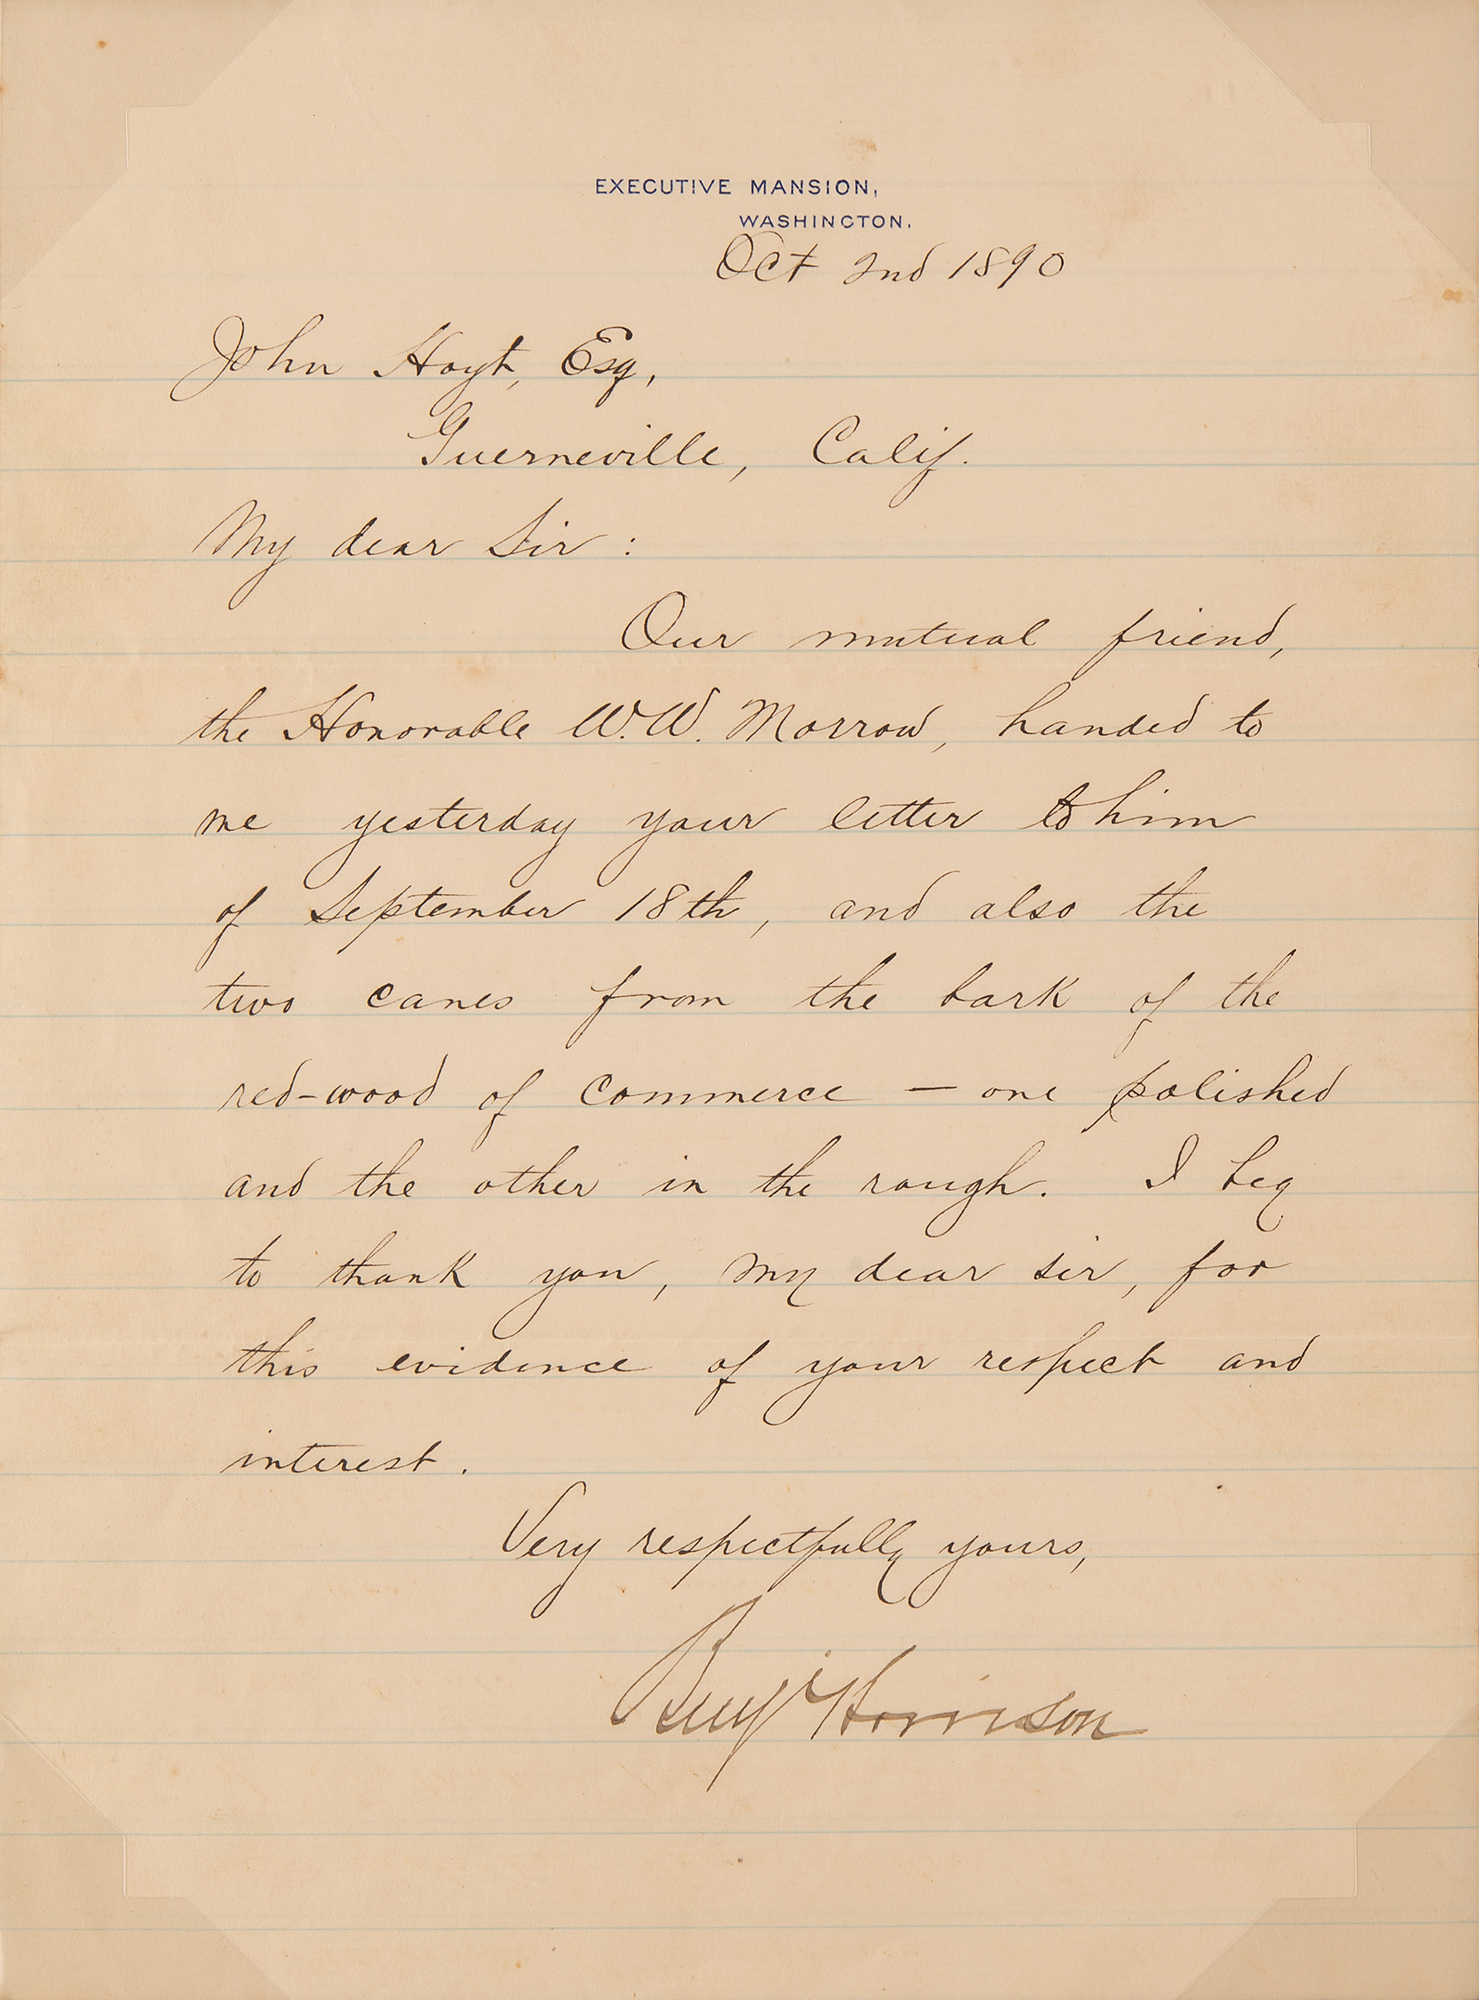 EXECUTIVE MANSION,
WASHINGTON.
Oct 2nd 1890
John Hoyt, Esq,
Guerneville, Calif.
My dear Sir:
Our mutual friend,
the Honorable W. W. Morrow, handed to
me yesterday your letter to him
of September 18th, and also the
two canes from the bark of the
red-wood of commerce — one polished
and the other in the rough. I beg
to thank you, my dear sir, for
this evidence of your respect and
interest.
Very respectfully yours,
Benj Harrison